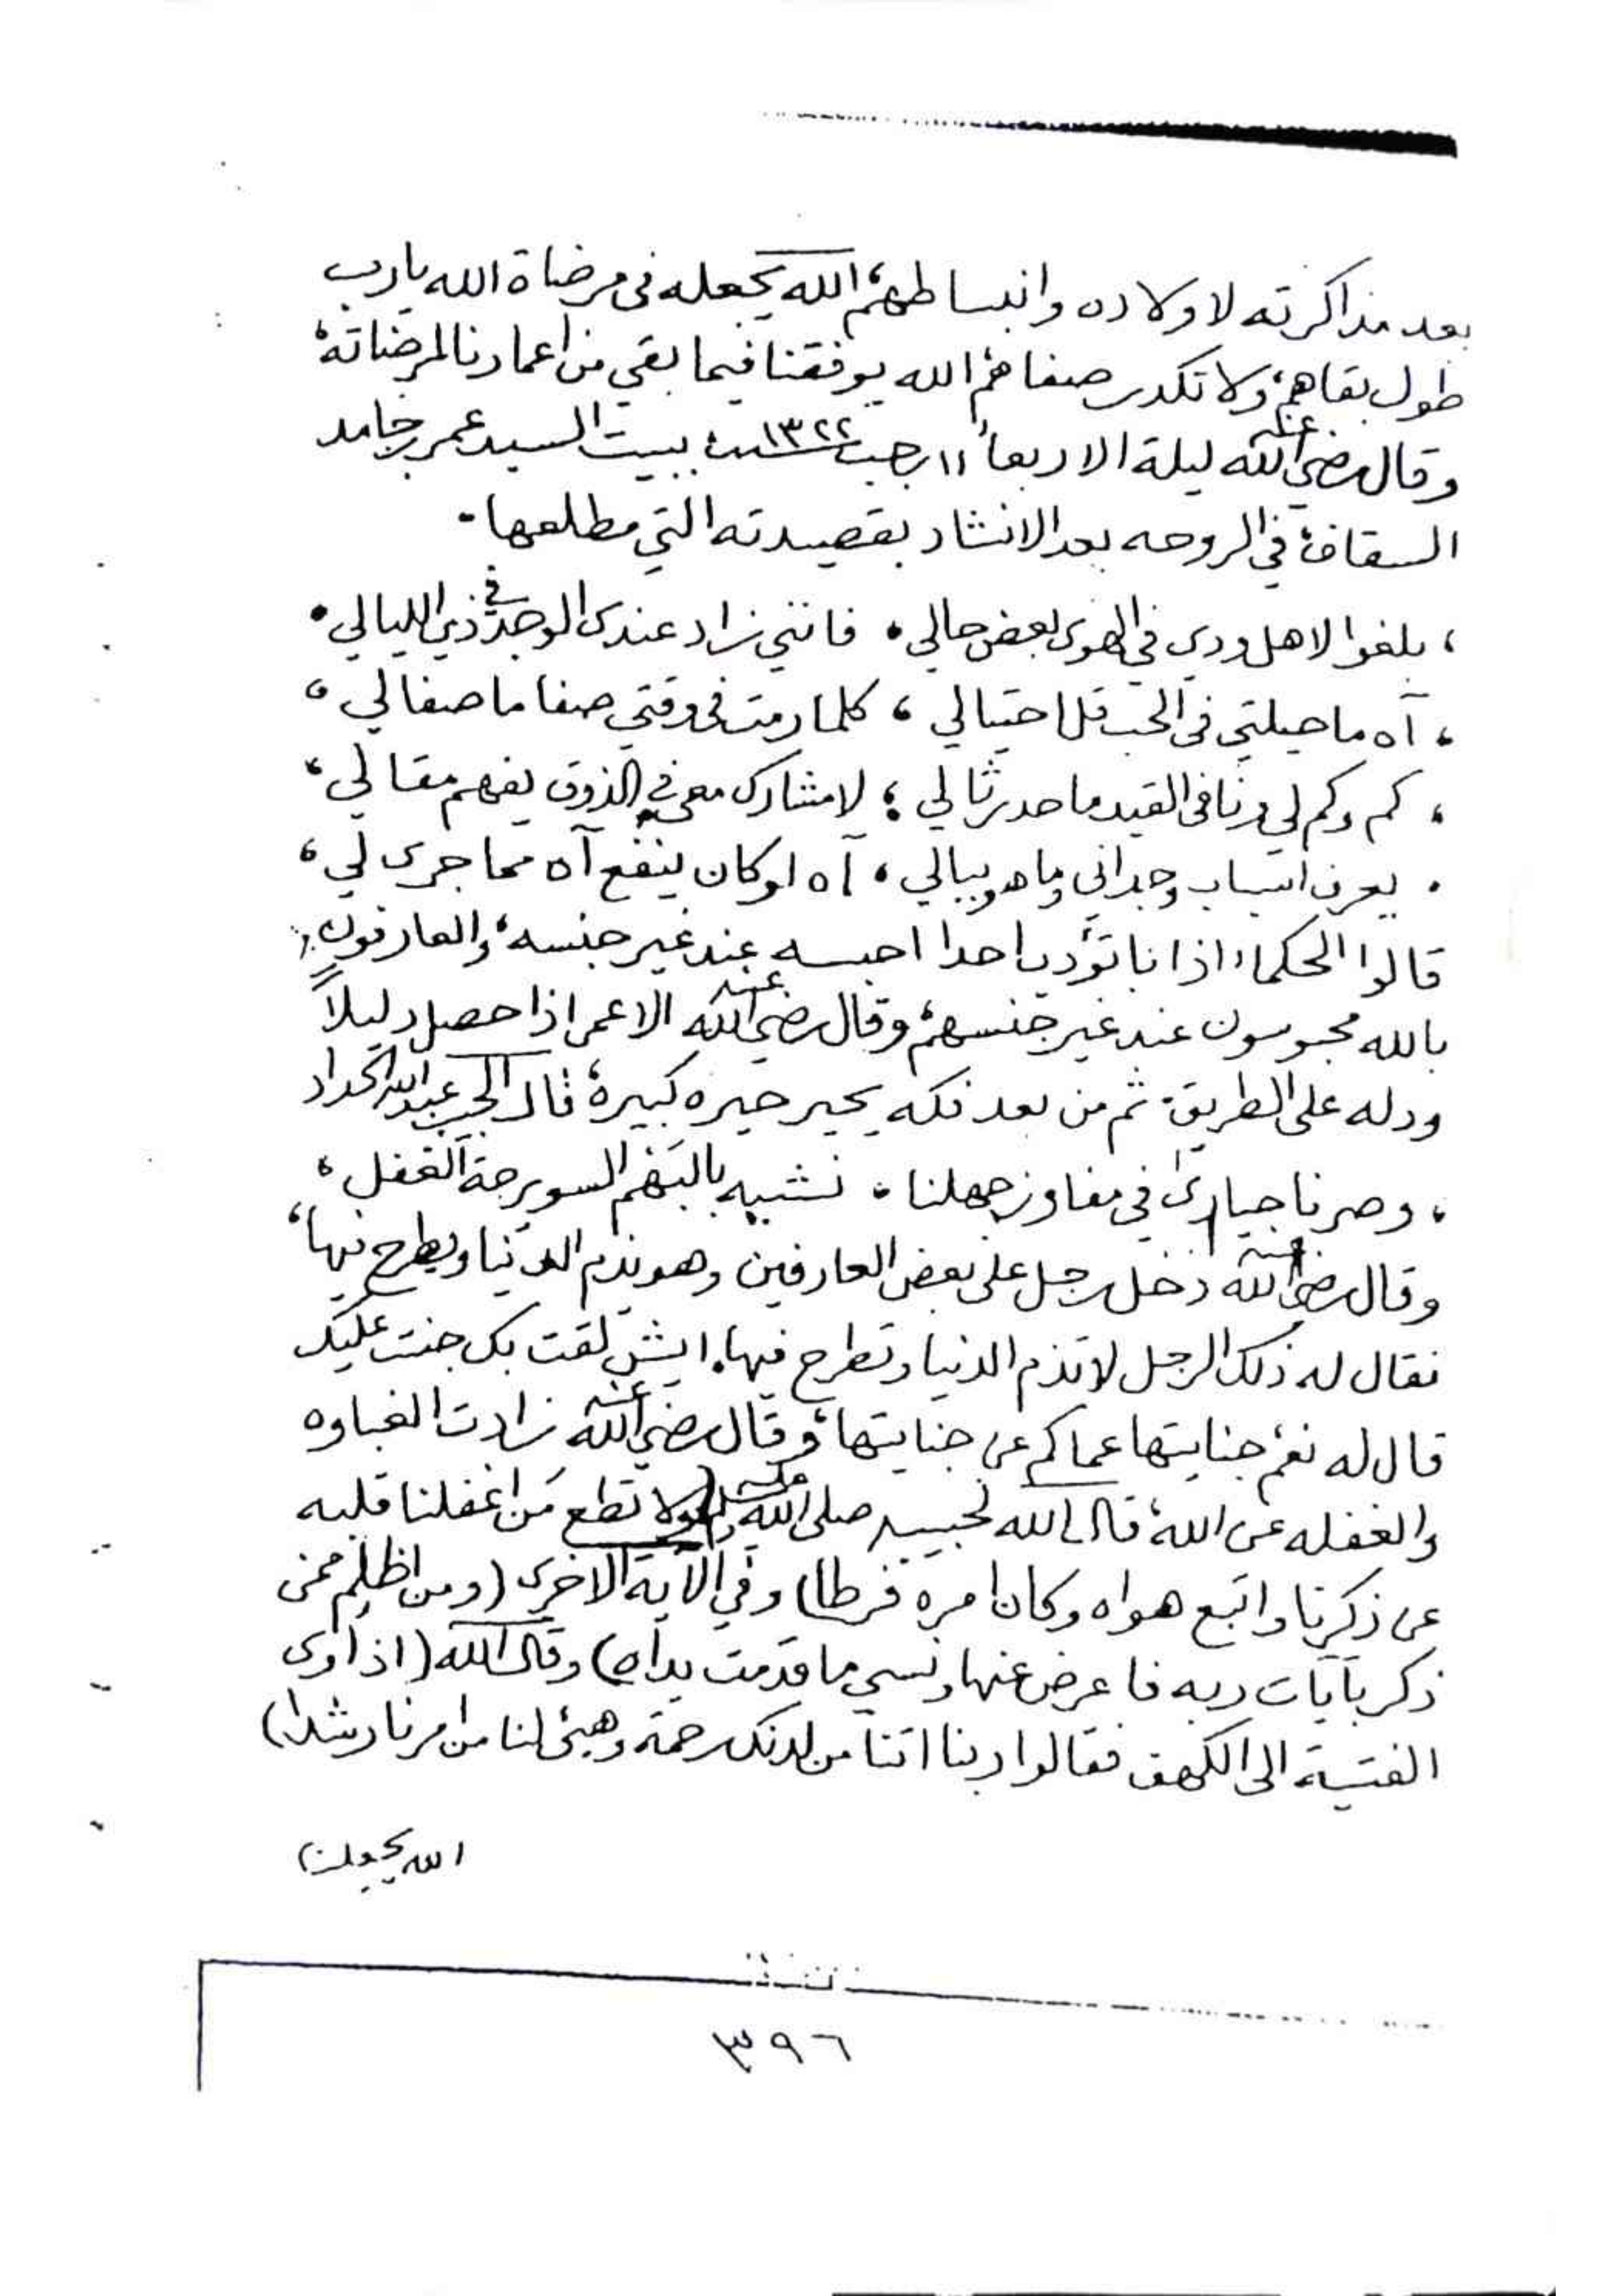 بعد مذاكرته لاولاده وانبساطهم، الله يجعله في مرضاة الله يارب
طول بقاهم، ولا تكدر صفاهم الله يوفقنا فيما بقي من اعمارنا لمرضاته،
وقال رضي الله عنه ليلة الاربعاء ١١ رجب سنة ١٣٢٢ ببيت السيد عمر حامد
السقاف، في الروحه بعد الانشاد بقصيدته التي مطلعها.
، بلغوا لاهل ودي في الهوى بعض حالي. فانني زاد عندي الوجد في ذي الليالي.
، آه ما حيلتي في الحب قل احتيالي ، كلما رمت في وقتي صفا ما صفا لي ،
، كم وكم لي ونا في القيد ما حد رثا لي ، لا مشارك معي في الذوق يفهم مقالي ،
. يعرف اسباب وجداني وما هو ببالي ، آه لو كان ينفع آه مما جرى لي ،
قالوا الحكماء اذا باتؤدب احدا احبسه عند غير جنسه، والعارفون
بالله محبوسون عند غير جنسهم، وقال رضي الله عنه الاعمى اذا حصل دليلاً
ودله على الطريق، ثم من بعد فكه يحير حيره كبيرة، قال الحبيب عبدالله الحداد
، وصرنا حيارى في مفاوز جهلنا . نشبه بالبهم السويرحة الغفل ،
وقال رضي الله عنه دخل رجل على بعض العارفين وهو يذم الدنيا ويطرح فيها،
فقال له ذلك الرجل لا تذم الدنيا وتطرح فيها، ايش لقت بك جنت عليك
قال له نعم جنايتها عماكم عن جنايتها، وقال رضي الله عنه زادت الغباوه
والغفله عن الله، قال الله لحبيبه صلى الله عليه وسلم (ولا تطع من اغفلنا قلبه
عن ذكرنا واتبع هواه وكان امره فرطا) وفي الآية الاخرى (ومن اظلم ممن
ذكر بآيات ربه فاعرض عنها ونسي ما قدمت يداه) وقال الله (اذ اوى
الفتية الى الكهف فقالوا ربنا اتنا من لدنك رحمة وهيئ لنا من امرنا رشدا)
الله يجعلنا
٣٩٦